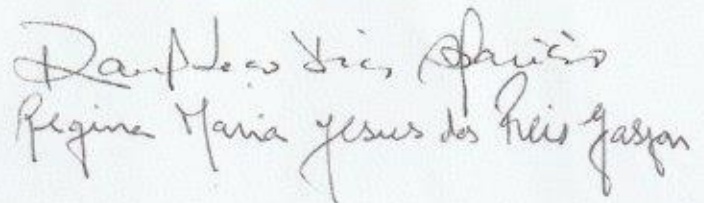 Dias Aparício
Regina Maria Jesus dos Reis Gaspar